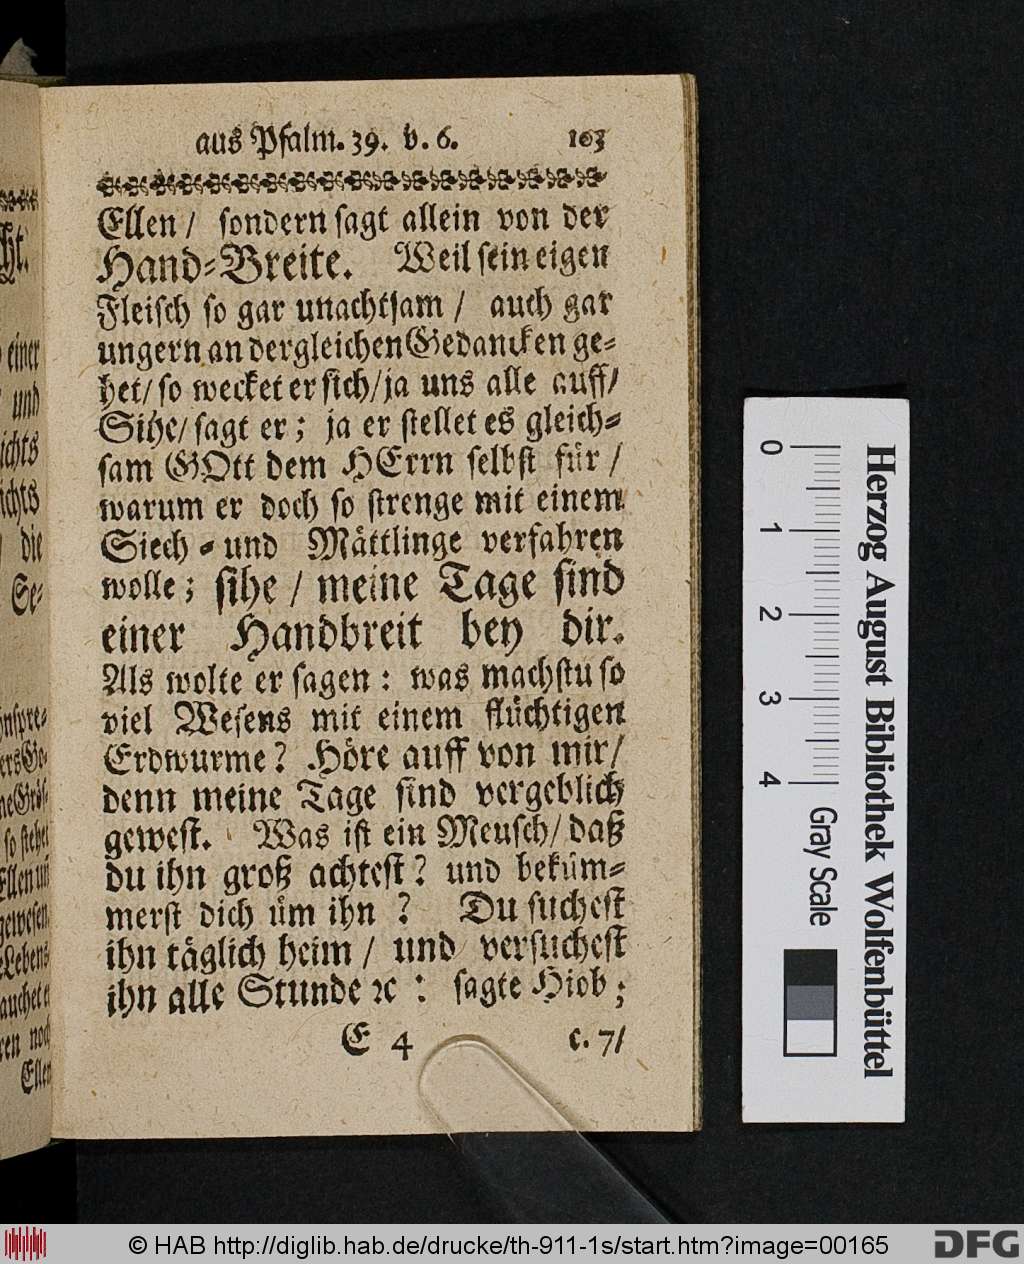 aus Psalm. 39. v. 6. 103
Ellen / sondern sagt allein von der
Hand-Breite. Weil sein eigen
Fleisch so gar unachtsam / auch gar
ungern an dergleichen Gedancken ge-
het / so wecket er sich / ja uns alle auff /
Sihe / sagt er ; ja er stellet es gleich-
sam GOtt dem HErrn selbst für /
warum er doch so strenge mit einem
Siech- und Mättlinge verfahren
wolle ; sihe / meine Tage sind
einer Handbreit bey dir.
Als wolte er sagen : was machstu so
viel Wesens mit einem flüchtigen
Erdwurme ? Höre auff von mir /
denn meine Tage sind vergeblich
gewest. Was ist ein Mensch / daß
du ihn groß achtest ? und beküm-
merst dich üm ihn ? Du suchest
ihn täglich heim / und versuchest
ihn alle Stunde ꝛc : sagte Hiob ;
E 4 c. 7 /
einer
und
ichts
ichts
die
Se-
Ellen
0 1 2 3 4
Gray Scale
Herzog August Bibliothek Wolfenbüttel
© HAB http://diglib.hab.de/drucke/th-911-1s/start.htm?image=00165
DFG